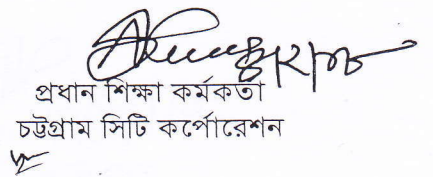 প্রধান শিক্ষা কর্মকর্তা
চট্টগ্রাম সিটি কর্পোরেশন